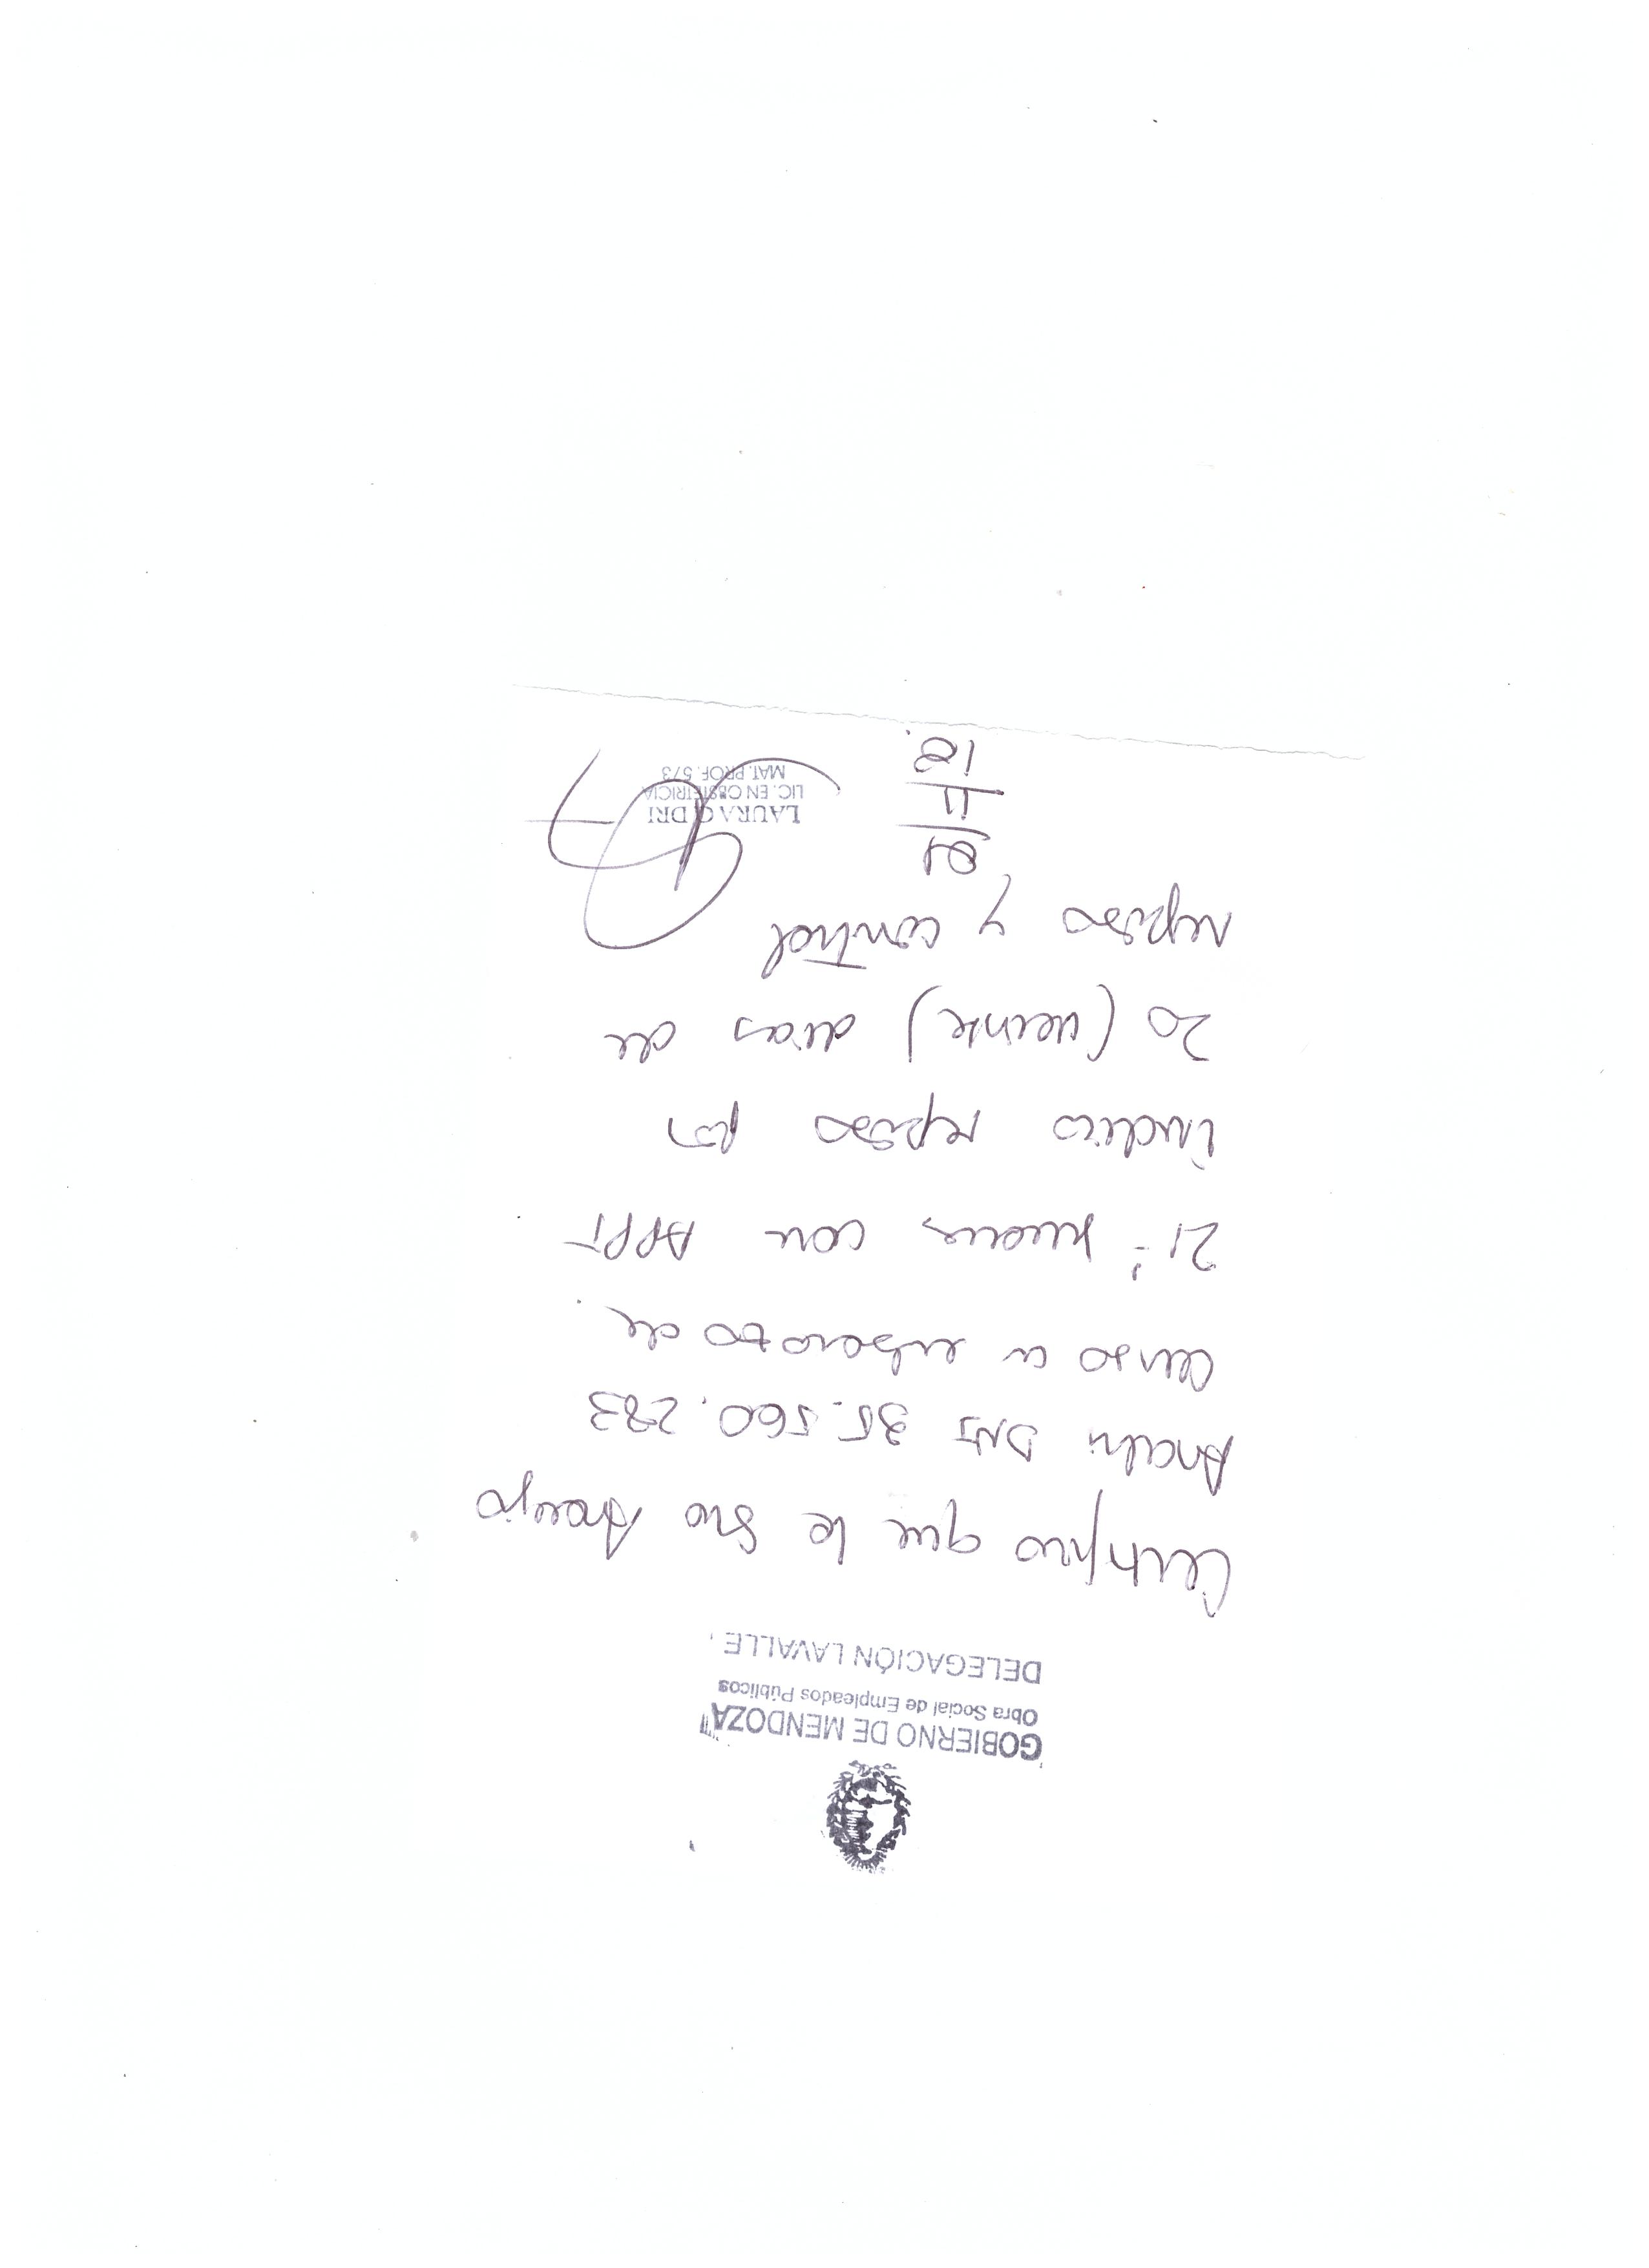 GOBIERNO DE MENDOZA
Obra Social de Empleados Públicos
DELEGACIÓN LAVALLE
Certifico que la Sra Araujo
Anahí DNI 35.560.283
cursa un embarazo de
21 semanas con APPT
indico reposo por
20 (veinte) días de
reposo y control
01
11
18
LAURA G DRI
LIC. EN OBSTETRICIA
MAT. PROF. 573